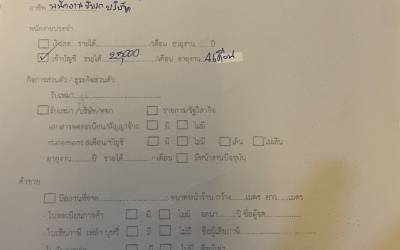 อาชีพ พนักงานขับรถ บริษัท
พนักงานประจำ
รายได้ /เดือน อายุงาน ปี
เข้าบัญชี รายได้ 25,000 /เดือน อายุงาน 4 เดือน
กิจการส่วนตัว / ธุรกิจส่วนตัว
รับเหมา
รับเหมา /บริษัท/หจก ราชการ/รัฐวิสาหกิจ
เอกสารจดทะเบียน/สัญญาจ้าง มี ไม่มี
statement 6เดือน/บัญชี มี ไม่มี เดิน ไม่เดิน
อายุงาน ปี รายได้ /เดือน มีหน้างานปัจจุบัน
ค้าขาย
ขนาดหน้าร้าน กว้าง เมตร ยาว เมตร
- ใบทะเบียนการค้า มี ไม่มี จดมา ปี ชื่อผู้จด
- ใบเสียภาษี เหล้า บุหรี่ มี ไม่มี ชื่อผู้เสียภาษี